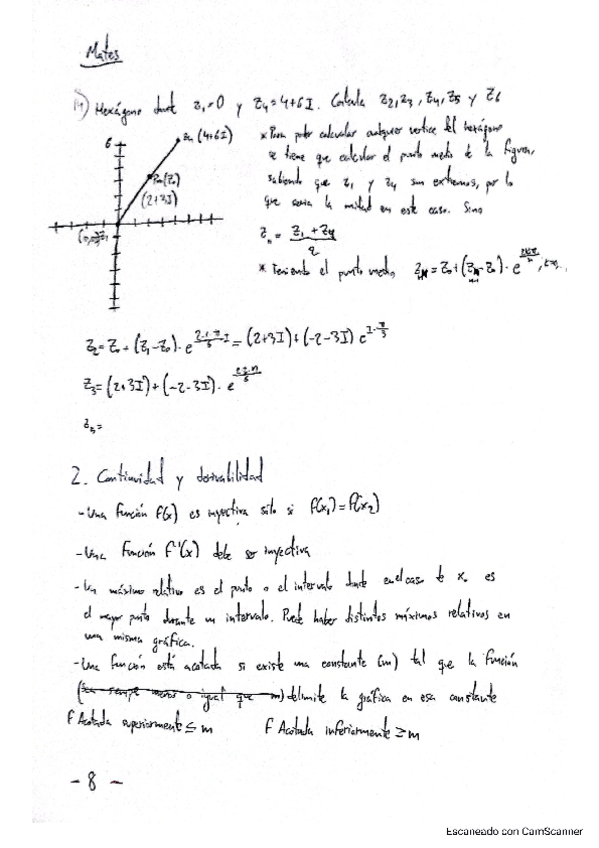 Mates
14) Hexágono donde z₁=0 y z₄=4+6I. Calcula z₂, z₃, z₄, z₅ y z₆
6
z₄ (4+6I)
Pm(z₀)
(2+3I)
* Para poder calcular cualquier vertice del hexágono
se tiene que calcular el punto medio de la figura,
sabiendo que z₁ y z₄ son extremos, por lo
que seria la mitad en este caso. Sino
= z₁ + z₄ / 2
* Teniendo el punto medio,
z₂ = z₀ + (z₁-z₀) · e^(2·1·π·I/6) = (2+3I)+(-2-3I) e^(I·π/3)
z₃ = (2+3I)+(-2-3I) · e
z₃ =
2. Continuidad y derivabilidad
- Una función f(x) es inyectiva sólo si f(x₁)=f(x₂)
- Una función f⁻¹(x) debe ser inyectiva
- Un máximo relativo es el punto o el intervalo donde en el caso de x₀ es
el mayor punto durante un intervalo. Puede haber distintos máximos relativos en
una misma gráfica.
- Una función está acotada si existe una constante (m) tal que la función
(sea siempre menor o igual que m) delimite la gráfica en esa constante
f Acotada superiormente ≤ m f Acotada inferiormente ≥ m
- 8 -
Escaneado con CamScanner